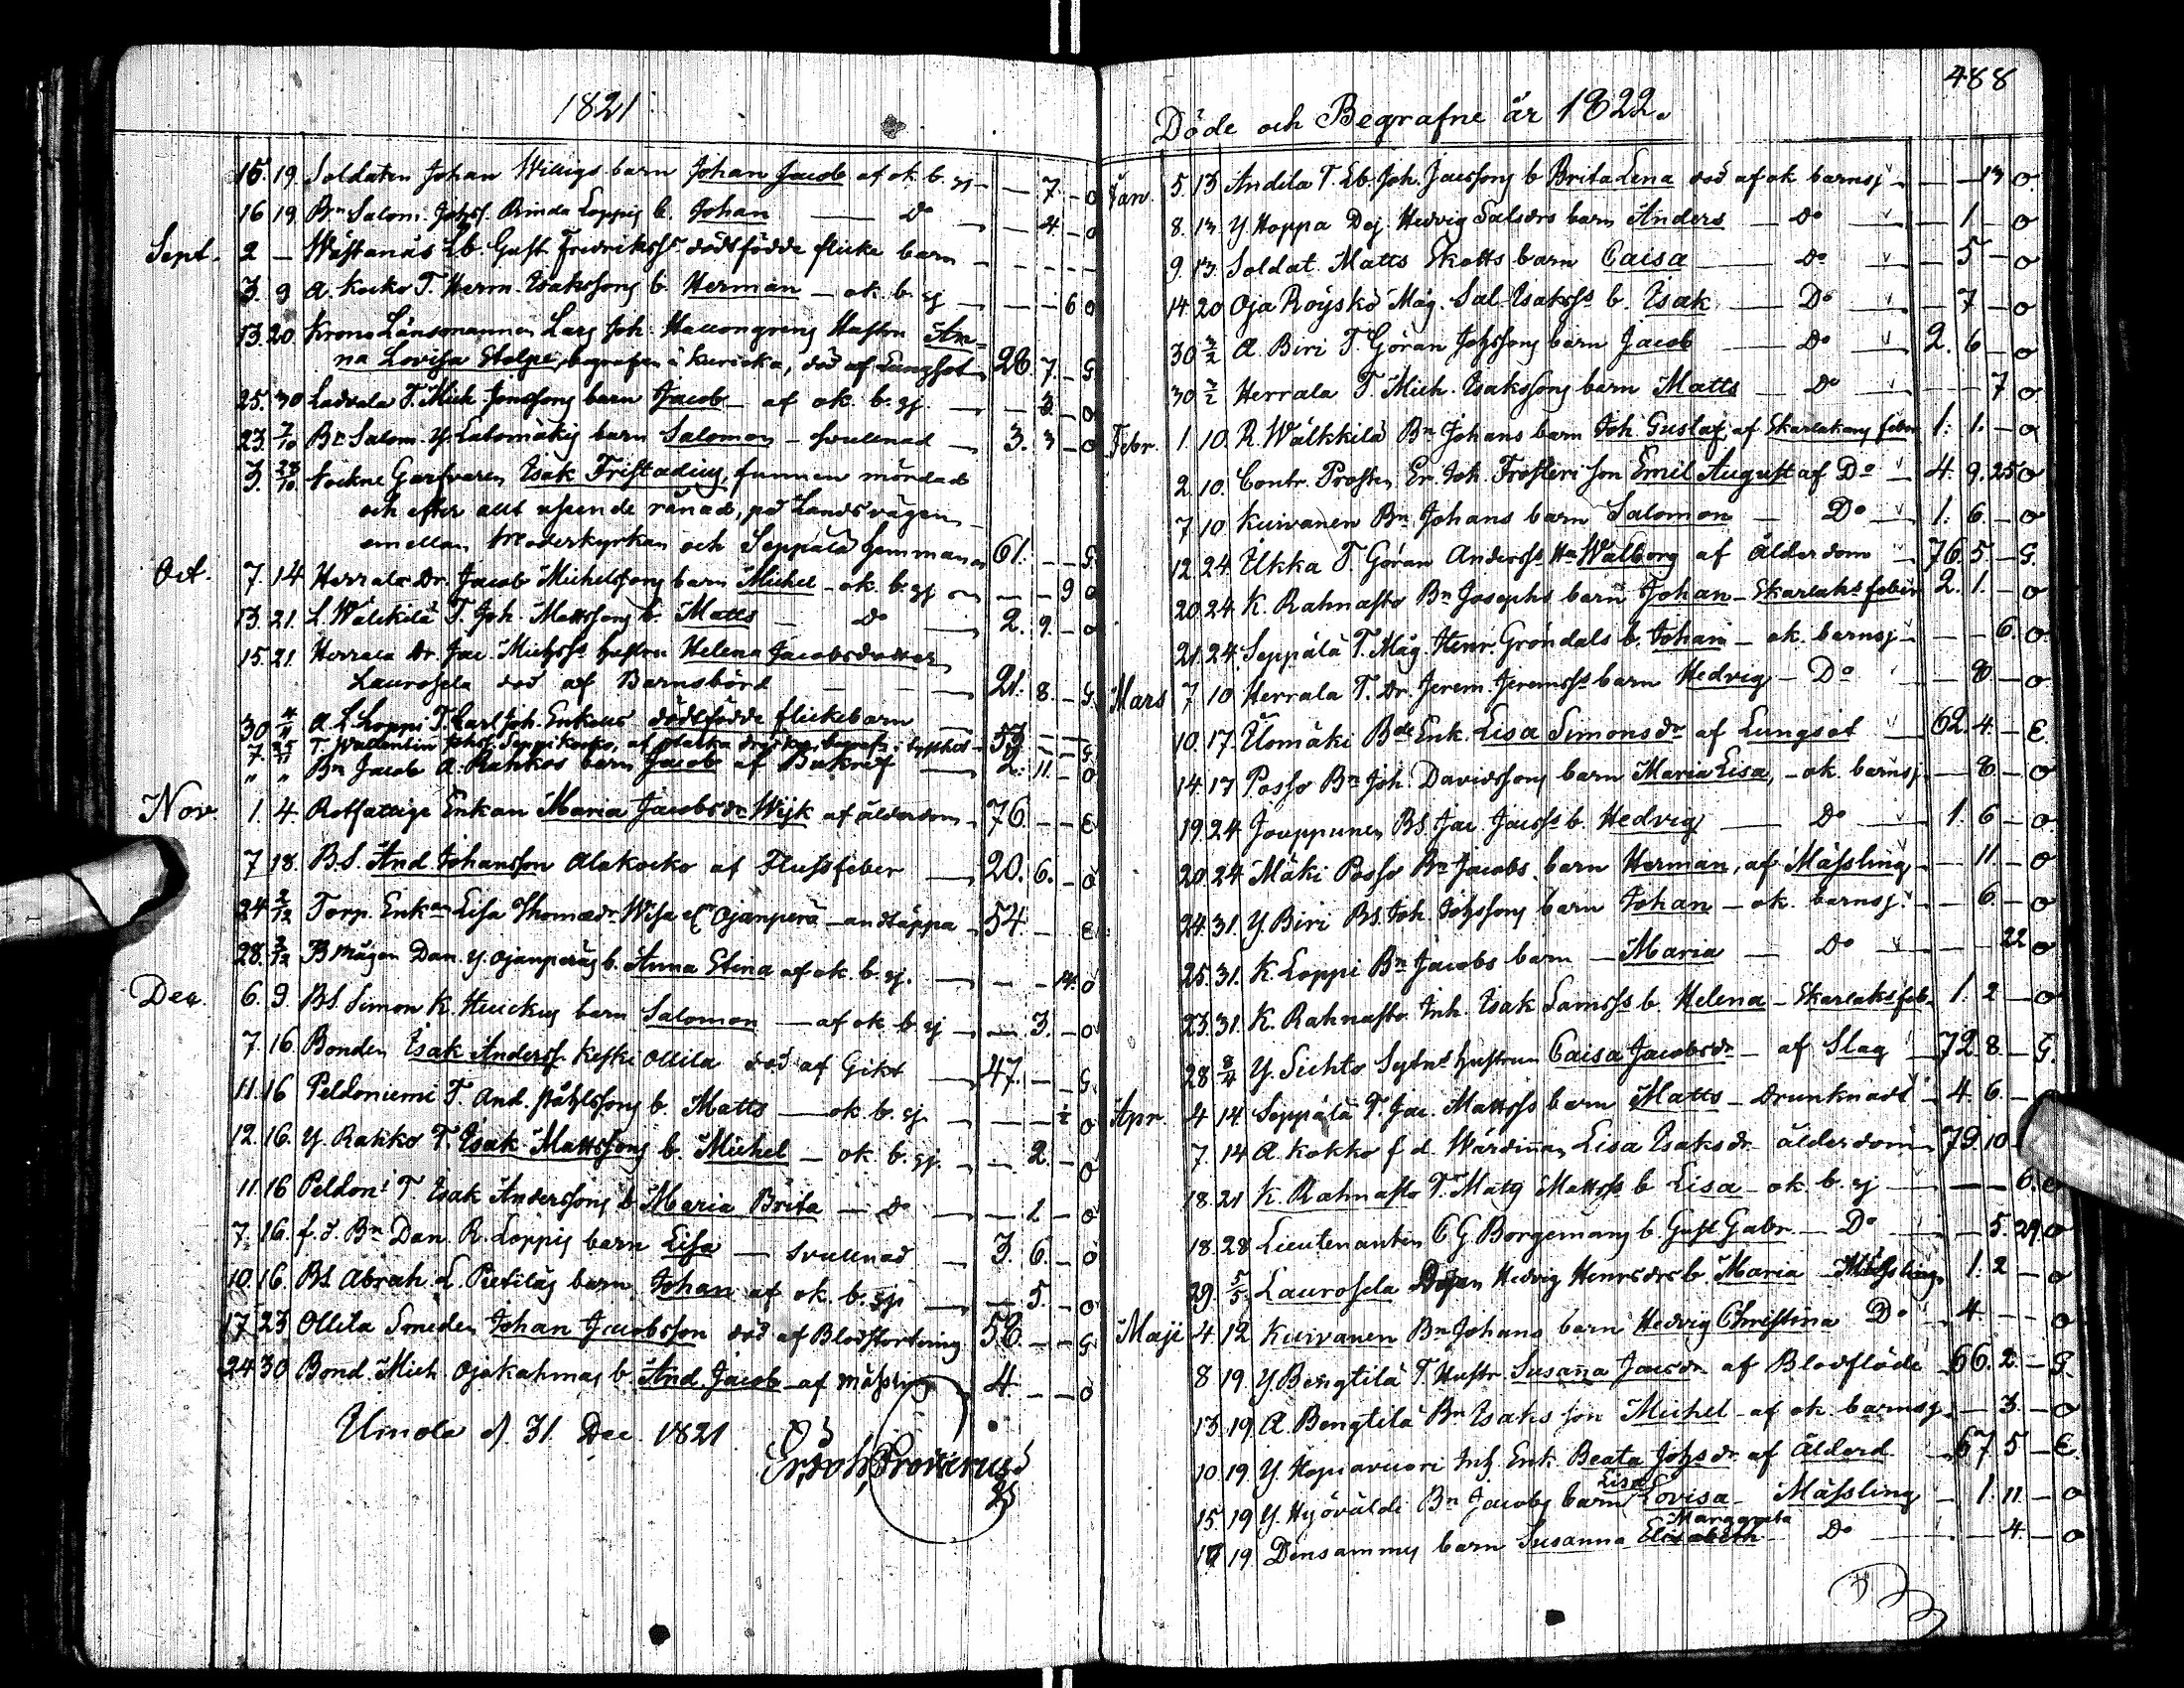 1821
15. 19. Soldaten Johan Willigs barn Johan Jacob af ok. b. sj. — 7. — O
16 19. Bn Salom. Johss. Rinda Loppis b. Johan — Do — 4. — O
Sept. 2 — Wästanäs Lb. Gust. Fredrikss. dödfödde flicke barn — — —
3. 9 A. Kocko T. Herm. Isakssons b. Herman — ok. b. sj. — — 6 O
13. 20. Krono Länsmannen Lars Joh. Hallongrens Hustru An-
na Lovisa Stolpe, begrafen i Kuricka, död af Lungsot 28. 7. — G
25. 30 Ladvala T. Mich. Jonssons barn Jacob — af ok. b. sj. — 3. — O
23. 7/10 Bn Salom. Y. Latomäkis barn Salomon — svullnad — 3. 3 — O
3. 28/10. Sockne Garfvaren Isak Fristadius, funnen mördad
och efter allt utseende rånad, på Landsvägen
emellan Moderkyrkan och Seppälä hemmanen 61. — — G.
Oct. 7. 14 Herrala Dr. Jacob Michelssons barn Michel — ok. b. sj. — — 9 O
13. 21. L. Wälkkilä T. Joh. Mattssons b. Matts — Do — 2. 9. — O
15. 21. Herrala Dr. Jac. Michss. hustru Helena Jacobsdotter
Laurosela död af Barnsbörd — 21. 8. — G.
30 4/11 A. L. Loppi T. Carl Joh. Enkells dödfödde flickebarn — —
7. 25/11 T. Wallentin Johss. Seppikocko, af starka drycker, begrafs. i typhus — 53. — — G
" " Bn Jacob A. Rahkos barn Jacob af Bukref — 2. 11. — O
Nov. 1. 4. Rotfattige Enkan Maria Jacobsdr Wijk af ålderdom — 76. — — E
7 18. BS. And. Johansson Alakocko af Flussfeber — 20. 6. — O
24 2/12 Torp. Enkan Lisa Thomædr Wisa el. Ojanperä — andtäppa — 54. — E.
28. 2/12 B Mågen Dan. Y. Ojanperäs b. Anna Stina af ok. b. sj. — — — 14. O
Dec. 6. 9 BS. Simon K. Huickus barn Salomon — af ok. b. sj. — 3. — O
7. 16. Bonden Isak Anderss. Keski Ollila död af Gikt — 47. — — G.
11. 16 Peldoniemi T. And. Påhlssons b. Matts — ok. b. sj. — — ½ O
12. 16. Y. Rahko T. Isak Mattssons b. Michel — ok. b. sj. — 2. — O
11. 16 Peldoni T. Isak Anderssons b Maria Brita — Do — 2 — O
7. 16. f. d. Bn Dan. R. Loppis barn Lisa — svullnad — 3. 6. — O
10. 16. BS. Abrah. L. Pietiläs barn Johan af ok. b. sj. — 5. — O
17 23 Ollila Smeden Johan Jacobsson död af Blodstörtning 58. — — G
24 30 Bond. Mich Ojakahmas b. And. Jacob — af mässling 4. — — O
Umola d. 31 Dec. 1821.
488
Döde och Begrafne år 1822.
Jan. 5. 13 Andila T. Lb. Joh. Jacssons b Brita Lena död af ok barnsj — — 13 O.
8. 13. Y Hoppa Dej. Hedvig Salsdrs barn Anders — Do — 1 — O
9. 13. Soldat. Matts Skotts barn Caisa — Do — 5 — O
14. 20 Oja Röyskö Måg. Sal. Isakss. b. Isak — Do — 7 — O
30 3/2 A. Biri T. Göran Johssons barn Jacob — Do — 2. 6 — O
30 3/2 Herrala T. Mich. Isakssons barn Matts — Do — — 7 O
Febr. 1. 10. R. Wälkkilä Bn Johans barn Joh. Gustaf, af Skarlakans feber 1. 1. — O
2. 10. Contr. Prosten Er. Joh. Frosteri son Emil August af Do — 4. 9. 25 O
7 10 Kuivanen Bn Johans barn Salomon — Do — 1. 6. — O
12. 24. Ukka T. Göran Anderss. Ha Walborg af ålderdom — 76. 5 — G.
20. 24 K. Rahnasto Bn Josephs barn Johan — Skarlaks feber 2. 1. — O
21. 24. Seppälä T. Måg. Henr. Gröndals b. Johan — ok. barnsj — — 6. O
Mars 7 10 Herrala T. Dr. Jerem. Jeremss. barn Hedvig — Do — 8 — O
10. 17. Uomäki Bde Enk. Lisa Simonsdr af Lungsot — 62. 4. — E.
14. 17 Posso Bn Joh. Davidssons barn Maria Lisa, — ok. barnsj. — 8 — O
19. 24. Jouppunen BS. Jac. Jacss. b. Hedvig — Do — 1. 6 — O
20. 24 Mäki Posso Bn Jacobs barn Herman, af Mässling — 11 — O
24. 31. Y. Biri BS. Joh. Johssons barn Johan — ok. barnsj — 6 — O
25. 31. K. Loppi Bn Jacobs barn — Maria — Do — — 22 O
23. 31. K. Rahnasto Inh. Isak Samss. b. Helena — Skarlaksfeb. 1. 2 — O
28 8/4 Y. Sichto Sytns hustrun Caisa Jacobsdr — af Slag — 72. 8. — G.
Apr. 4 14. Seppälä T. Jac. Mattss. barn Matts — Drunknadt — 4. 6. —
7. 14 A. Kokko f d. Wärdinnan Lisa Isaksdr ålderdom 79. 10
18. 21 K. Rahnasto T. Mats Mattss. b Lisa — ok. b. sj — — 6. O
18. 28 Lieutenanten C G Borgemans b. Gust. Gabr. — Do — 5. 29 O
29. 5/5 Laurosela Dejan Hedvig Henrsdrs b. Maria Mässling 1. 2 — O
Maji 4. 12 Kuivanen Bn Johans barn Hedvig Christina Do — 4. — — O
8 19 Y. Bengtilä T. Hustr. Susanna Jacsdr af Blodflöde 66. 2 — G.
13. 19 A. Bengtilä Bn Isaks son Michel — af ok. barnsj. — 3. — O
10. 19 Y. Hopiavuori Inh. Enk. Beata Johsdr af ålderd. — 67 5 — E.
15. 19 Y. Hyöväldi Bn Jacobs barn Lisa Lovisa — Mässling — 1. 11 — O
17 19 Densammes barn Susanna Elisabeth Margareta Do — 4. — O